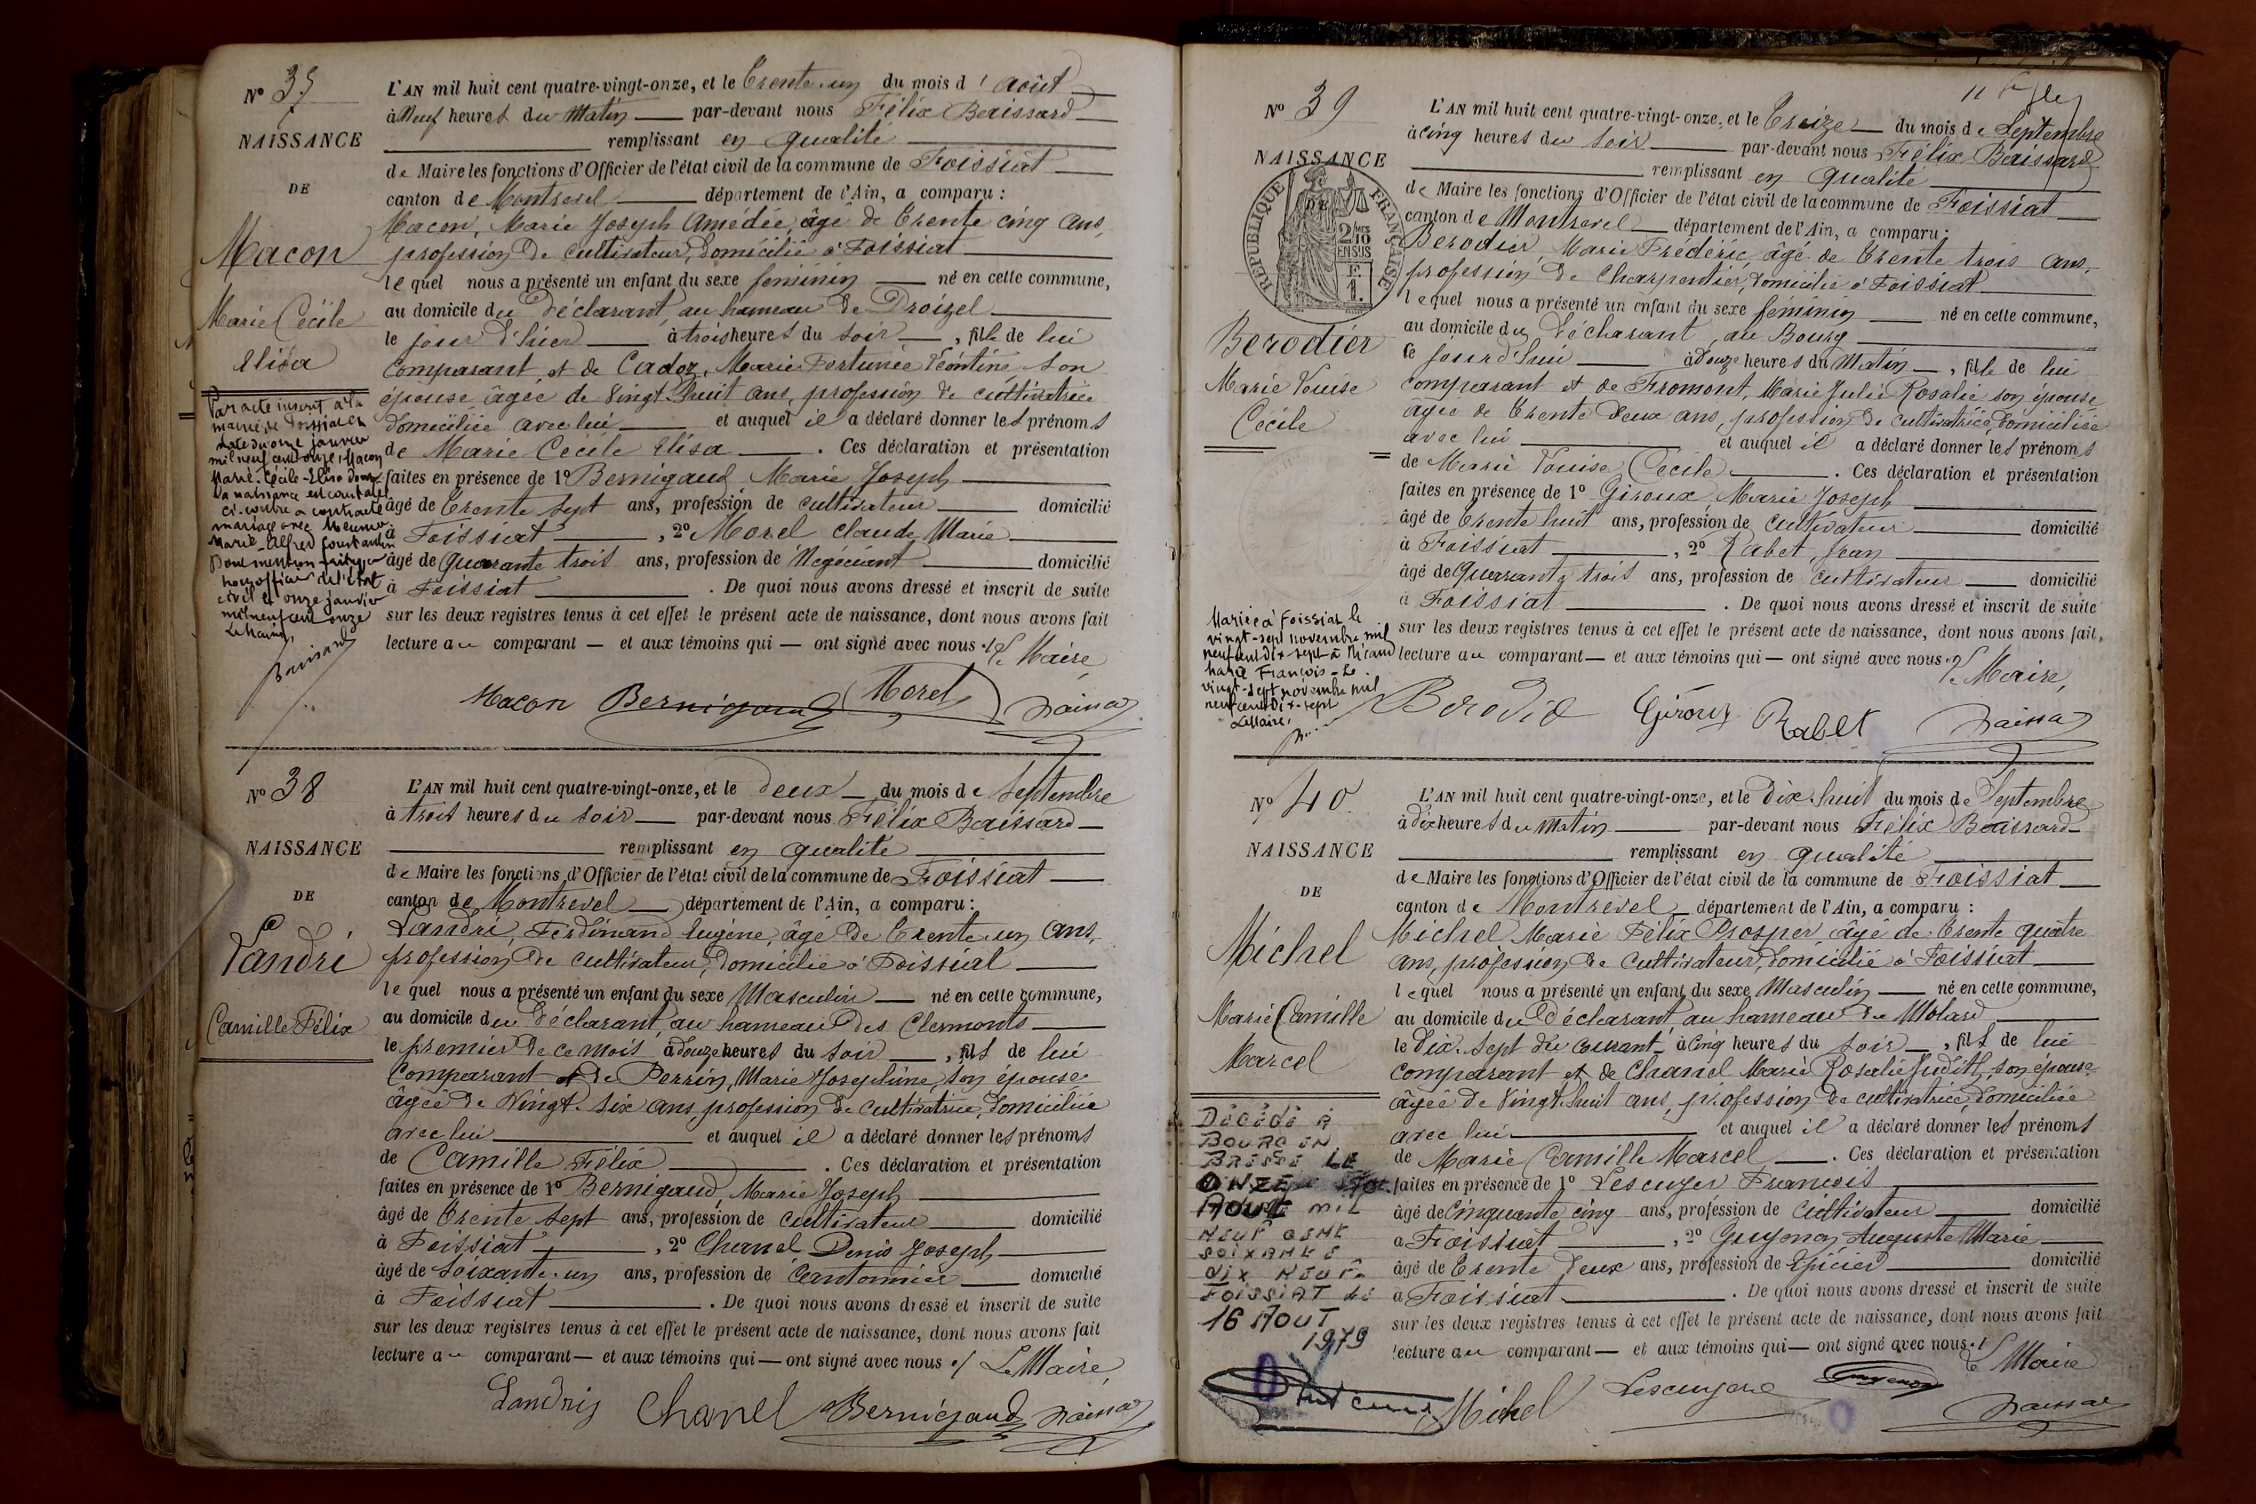 Nº 37
NAISSANCE
DE
Macon
Marie Cécile
Elisa
Par acte inscrit à la
mairie de Foissiat en
date du onze janvier
mil neuf cent onze, Macon
Marie-Cécile-Elisa dont
la naissance est constatée
ci-contre a contracté
mariage avec Meunier
Marie-Alfred Constantin
Dont mention faite par
nous officier de l'état
civil le onze janvier
mil neuf cent onze
Le Maire,
L'AN mil huit cent quatre-vingt-onze, et le Trente-un du mois d'août
à Neuf heures du Matin par-devant nous Félix Boissard
remplissant en qualité
de Maire les fonctions d'Officier de l'état civil de la commune de Foissiat
canton de Montrevel département de l'Ain, a comparu :
Macon, Marie Joseph Amédée, âgé de Trente cinq ans,
profession de cultivateur, domicilié à Foissiat
lequel nous a présenté un enfant du sexe féminin né en cette commune,
au domicile du Déclarant, au hameau de Droizel
le jour d'hier à trois heures du soir, fille de lui
comparant et de Cadoz, Marie Fortunée Léontine son
épouse âgée de Vingt huit ans, profession de cultivatrice
domiciliée avec lui et auquel il a déclaré donner les prénoms
de Marie Cécile Elisa. Ces déclaration et présentation
faites en présence de 1º Bernigaud Marie Joseph
âgé de Trente sept ans, profession de cultivateur domicilié
à Foissiat, 2º Morel Claude Marie
âgé de Quarante trois ans, profession de Négociant domicilié
à Foissiat. De quoi nous avons dressé et inscrit de suite
sur les deux registres tenus à cet effet le présent acte de naissance, dont nous avons fait
lecture au comparant — et aux témoins qui — ont signé avec nous ./. Le Maire,
Macon Bernigaud Morel
Nº 38
NAISSANCE
DE
Landri
Camille Félix
L'AN mil huit cent quatre-vingt-onze, et le deux du mois de Septembre
à trois heures du soir par-devant nous Félix Boissard
remplissant en qualité
de Maire les fonctions d'Officier de l'état civil de la commune de Foissiat
canton de Montrevel département de l'Ain, a comparu :
Landri, Ferdinand Eugène, âgé de Trente-un ans,
profession de cultivateur, domicilié à Foissiat
lequel nous a présenté un enfant du sexe Masculin né en cette commune,
au domicile du Déclarant au hameau des Clermonts
le premier de ce mois à douze heures du soir, fils de lui
comparant et de Perrin, Marie Joséphine, son épouse
âgée de Vingt-six ans, profession de cultivatrice, domiciliée
avec lui et auquel il a déclaré donner les prénoms
de Camille Félix. Ces déclaration et présentation
faites en présence de 1º Bernigaud, Marie Joseph
âgé de Trente sept ans, profession de cultivateur domicilié
à Foissiat, 2º Chanel Denis Joseph
âgé de Soixante-un ans, profession de Cantonnier domicilié
à Foissiat. De quoi nous avons dressé et inscrit de suite
sur les deux registres tenus à cet effet le présent acte de naissance, dont nous avons fait
lecture au comparant — et aux témoins qui — ont signé avec nous ./. Le Maire,
Landris Chanel Bernigaud
Nº 39
NAISSANCE
DE
RÉPUBLIQUE FRANÇAISE
2/10
EN SUS
Berodier
Marie Louise
Cécile
Mariée à Foissiat le
vingt-sept novembre mil
neuf cent dix-sept à Nicaud
Marie François - Le
vingt-sept novembre mil
neuf cent dix-sept
Le Maire,
L'AN mil huit cent quatre-vingt-onze, et le Treize du mois de Septembre
à cinq heures du soir par-devant nous Félix Boissard
remplissant en qualité
de Maire les fonctions d'Officier de l'état civil de la commune de Foissiat
canton de Montrevel département de l'Ain, a comparu :
Berodier, Marie Frédéric, âgé de Trente trois ans,
profession de Charpentier, domicilié à Foissiat
lequel nous a présenté un enfant du sexe féminin né en cette commune,
au domicile du Déclarant, au Bourg
le jour d'hui à Douze heures du Matin, fille de lui
comparant et de Fromont, Marie Julie Rosalie son épouse
âgée de Trente deux ans, profession de cultivatrice, domiciliée
avec lui et auquel il a déclaré donner les prénoms
de Marie Louise Cécile. Ces déclaration et présentation
faites en présence de 1º Giroux Marie Joseph
âgé de Trente huit ans, profession de Cultivateur domicilié
à Foissiat, 2º Rabet, Jean
âgé de Quarante trois ans, profession de cultivateur domicilié
à Foissiat. De quoi nous avons dressé et inscrit de suite
sur les deux registres tenus à cet effet le présent acte de naissance, dont nous avons fait
lecture au comparant — et aux témoins qui — ont signé avec nous ./. Le Maire,
Giroux Rabet
Nº 40
NAISSANCE
DE
Michel
Marie Camille
Marcel
Décédé à
BOURG EN
BRESSE LE
ONZE
AOUT MIL
NEUF CENT
SOIXANTE
DIX NEUF
FOISSIAT LE
16 AOUT
1979
L'AN mil huit cent quatre-vingt-onze, et le Dix-huit du mois de Septembre
à dix heures du Matin par-devant nous Félix Boissard
remplissant en qualité
de Maire les fonctions d'Officier de l'état civil de la commune de Foissiat
canton de Montrevel département de l'Ain, a comparu :
Michel Marie Félix Prosper, âgé de Trente quatre
ans, profession de cultivateur, domicilié à Foissiat
lequel nous a présenté un enfant du sexe Masculin né en cette commune,
au domicile du Déclarant au hameau du Molard
le Dix-sept du courant à cinq heures du soir, fils de lui
comparant et de Chanel Marie Rosalie Judith, son épouse
âgée de Vingt huit ans, profession de cultivatrice, domiciliée
avec lui et auquel il a déclaré donner les prénoms
de Marie Camille Marcel. Ces déclaration et présentation
faites en présence de 1º Lescuyer François
âgé de Cinquante cinq ans, profession de Cultivateur domicilié
à Foissiat, 2º Guyenon Auguste Marie
âgé de Trente deux ans, profession de Epicier domicilié
à Foissiat. De quoi nous avons dressé et inscrit de suite
sur les deux registres tenus à cet effet le présent acte de naissance, dont nous avons fait
lecture au comparant — et aux témoins qui — ont signé avec nous ./. Le Maire
Michel Lescuyer